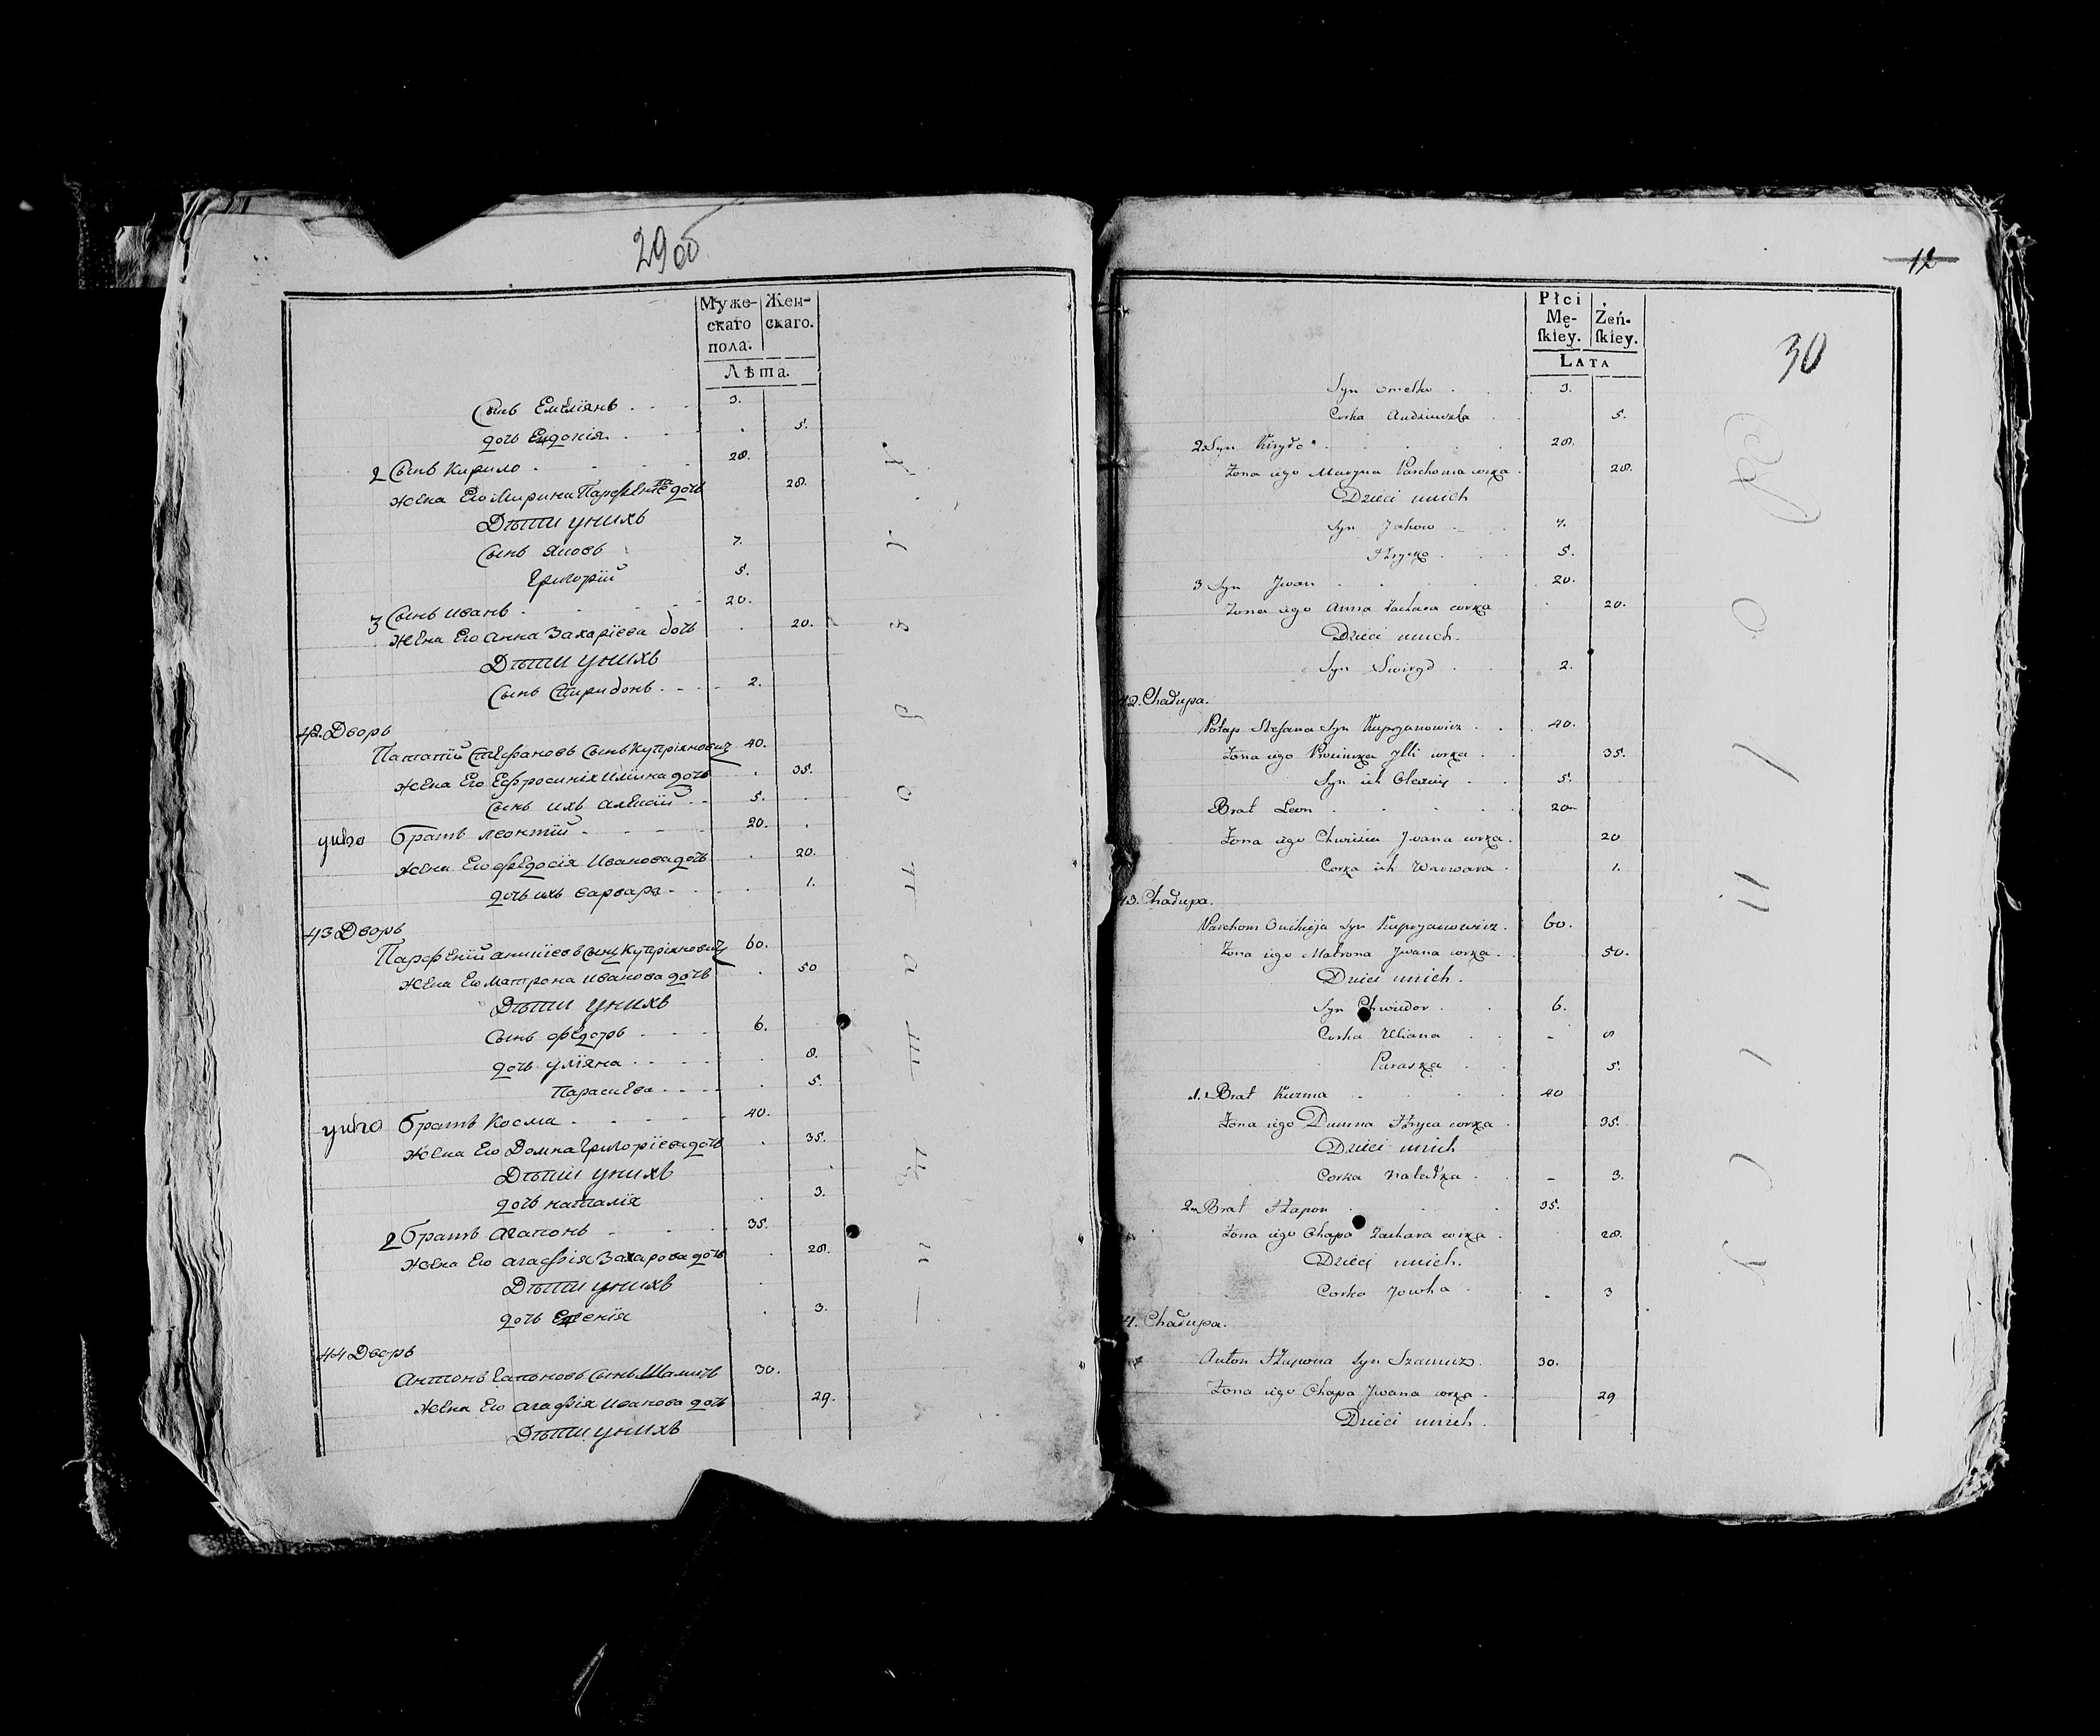 29 об
Муже- Жен-
скаго скаго.
пола.
Лѣта.
Сынъ Емелiянъ 3.
дочь Евдокiя 5.
2 Сынъ Кирило 28.
жена Его Марина Парфенiева дочь 28.
Дѣти унихъ
Сынъ Яковъ 7.
Григорiй 5.
3 Сынъ иванъ 20.
жена Его Анна Захарiева дочь 20.
Дѣти унихъ
Сынъ Спиридонъ 2.
42. Дворъ
Патапiй Стефановъ Сынъ Куприяновичь 40.
жена Его Ефросинiя Илiина дочь 35.
Сынъ ихъ алексiй 5.
унго братъ леонтiй 20.
жена Его федосiя Иванова дочь 20.
дочь ихъ варвара 1.
43 Дворъ
Парфенiй аникiевъ Сынъ Куприяновичь 60.
жена Его матрона иванова дочь 50
Дѣти унихъ
Сынъ федоръ 6.
дочь улiяна 8.
Параскева 5.
унго братъ Косма 40.
жена Его Домна Григорiева дочь 35.
Дѣти унихъ
дочь наталiя 3.
2 братъ агапонъ 35.
жена Его агафiя Захарова дочь 28.
Дѣти унихъ
дочь Евгенiя 3.
44 Дворъ
Антонъ Гапоновъ Сынъ 30.
жена Его агафiя иванова дочь 29.
Дѣти унихъ
12
30
Płci
Mę- Żeń-
ſkiey. ſkiey.
LATA
Syn Omelko 3.
Corka Audziuszka 5.
2. Syn Kiryło 28.
Żona iego Maryna Parchoma corka 28.
Dzieci unich
Syn Jakow 7.
Hryćko 5.
3 Syn Jwan 20.
Żona iego Anna Zachara corka 20.
Dzieci unich.
Syn Swiryd 2.
42. Chałupa.
Potap Stefana Syn Kupryanowicz 40.
Żona iego Jlli corka 35.
Syn ich Olexiey 5.
Brat Leon 20
Żona iego Chwiesia Jwana corka. 20
Corka ich Warwara 1.
43. Chałupa.
Parchom Onikieja Syn Kupryanowicz. 60.
Żona iego Matrona Jwana corka. 50.
Dzieci unich.
Syn Chwiedor 6.
Corka Uliana 8
Paraska 5.
1. Brat Kuzma 40
Żona iego Dumna Hryca corka 35.
Dzieci unich
Corka Natałka 3.
2 Brat Hapon 35.
Żona iego Chapa Zachara corka 28.
Dzieci unich.
Corka Jowha 3
Chałupa.
Anton Hapona Syn 30.
Żona iego Chapa Jwana corka 29
Dzieci unich.